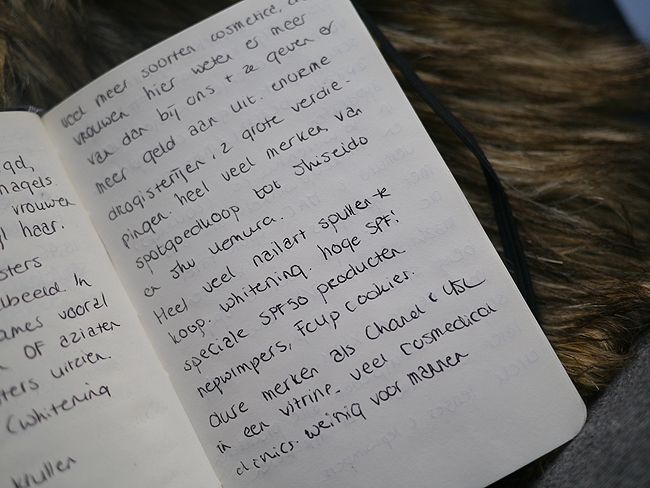 gd,
nagels.
vrouwen
haar.
sters
lbeeld. In
ames vooral
n OF aziaten
ters uitzien.
(whitening
krullen
veel meer soorten cosmetica, de
vrouwen hier weten er meer
van dan bij ons + ze geven er
meer geld aan uit. enorme
drogisterijen, 2 grote verdie-
pingen. heel veel merken, van
spotgoedkoop tot shiseido
en shu uemura.
Heel veel nailart spullen te
koop, whitening, hoge SPF!
speciale SPF50 producten
nepwimpers, Fcup cookies.
Dure merken als Chanel & YSL
in een vitrine. veel cosmedical
clinics. weinig voor mannen